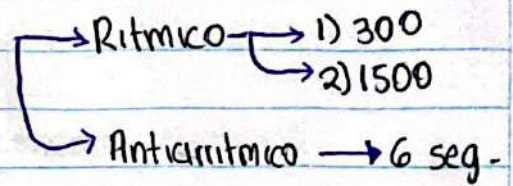 Ritmico → 1) 300
→ 2) 1500
Antiarritmico → 6 seg.